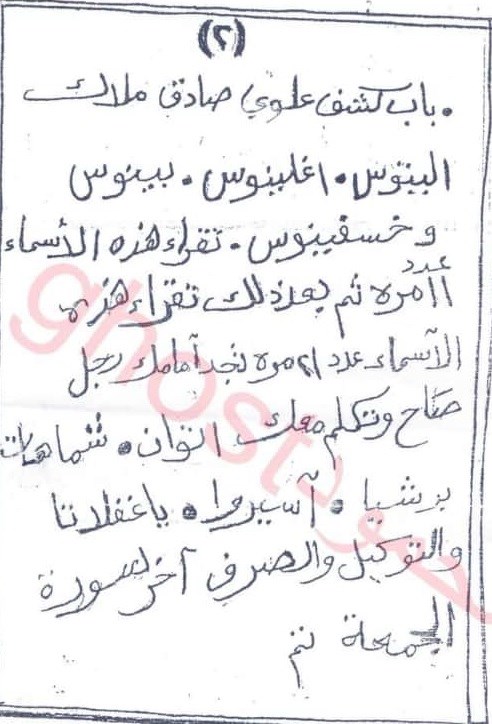 (٢)
٠ باب كشف علوي صادق ملاك
البنوس ٠ اغلبينوس ٠ بينوس
و خسفيينوس ٠ تقراء هذه الأسماء
عدد
١١ مره ثم بعد ذلك تقراء هذه
الآسماء عدد ٢١ مره تجد آمامك رجل
وتكلم معك انوان ٠ شماهات
برشيا ٠ آسيروا ٠ يا غفلاتا
والتوكيل والصرف آخر سورة
الجمعة تم
ghost